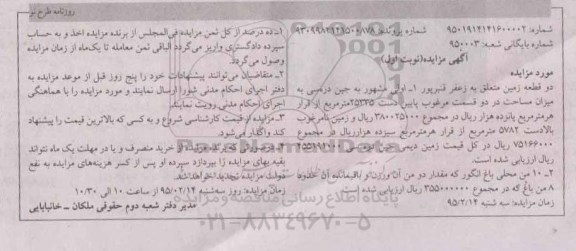 روزنامه طرح نو
شماره: ۹۵۰۱۹۱۴۱۴۱۶۰۰۰۰۲ شماره پرونده: ۹۳۰۹۹۸۴۱۴۱۵۰۰۸۷۸
شماره بایگانی شعبه: ۹۵۰۰۰۳
آگهی مزایده(نوبت اول)
مورد مزایده
دو قطعه زمین متعلق به زعفر قنبرپور ۱ـ اولی مشهور به جین درسی به
میزان مساحت در دو قسمت مرغوب پایین دست ۲۵۳۳۵مترمربع از قرار
هرمترمربع پانزده هزار ریال در مجموع ۳۸۰۰۲۵۰۰۰ ریال و زمین نامرغوب
بالادست ۵۷۸۲ مترمربع از قرار هرمترمربع سیزده هزارریال در مجموع
۷۵۱۶۶۰۰۰ ریال در کل قیمت زمین دیمی جین درسی ۴۵۵۱۹۱۰۰۰
ریال ارزیابی شده است.
۲ـ ۱۰ من محلی باغ انگور که مقدار دو من آن وزران و باقیمانده آن حدود
۸ من باغ که در مجموع ۳۵۵۰۰۰۰۰۰ ریال ارزیابی شده است.
زمان مزایده: سه شنبه ۹۵/۲/۱۴
۱ـ ده درصد از کل ثمن مزایده فی‌المجلس از برنده مزایده اخذ و به حساب
سپرده دادگستری واریز می‌گردد الباقی ثمن معامله تا یک‌ماه از زمان مزایده
وصول می‌گردد.
۲ـ متقاضیان می‌توانند پیشنهادات خود را پنج روز قبل از موعد مزایده به
دفتر اجرای احکام مدنی شورا ارسال نمایند و مورد مزایده را با هماهنگی
اجرای احکام مدنی رویت نمایند.
۳ـ مزایده از قیمت کارشناسی شروع و به کسی که بالاترین قیمت را پیشنهاد
کند واگذار می‌شود.
۴ـ در صورتی که برنده مزایده از خرید منصرف و یا در مهلت یک ماه نتواند
بقیه بهای مزایده را بپردازد سپرده او پس از کسر هزینه‌های مزایده به نفع
دولت مزایده تجدید خواهد شد.
زمان مزایده: روز سه‌شنبه ۹۵/۰۲/۱۴ از ساعت ۱۰ الی ۱۰/۳۰
مدیر دفتر شعبه دوم حقوقی ملکان ـ خانبابایی
پایگاه اطلاع رسانی مناقصه و مزایده
۰۲۱-۸۸۳۴۹۶۷۰-۵